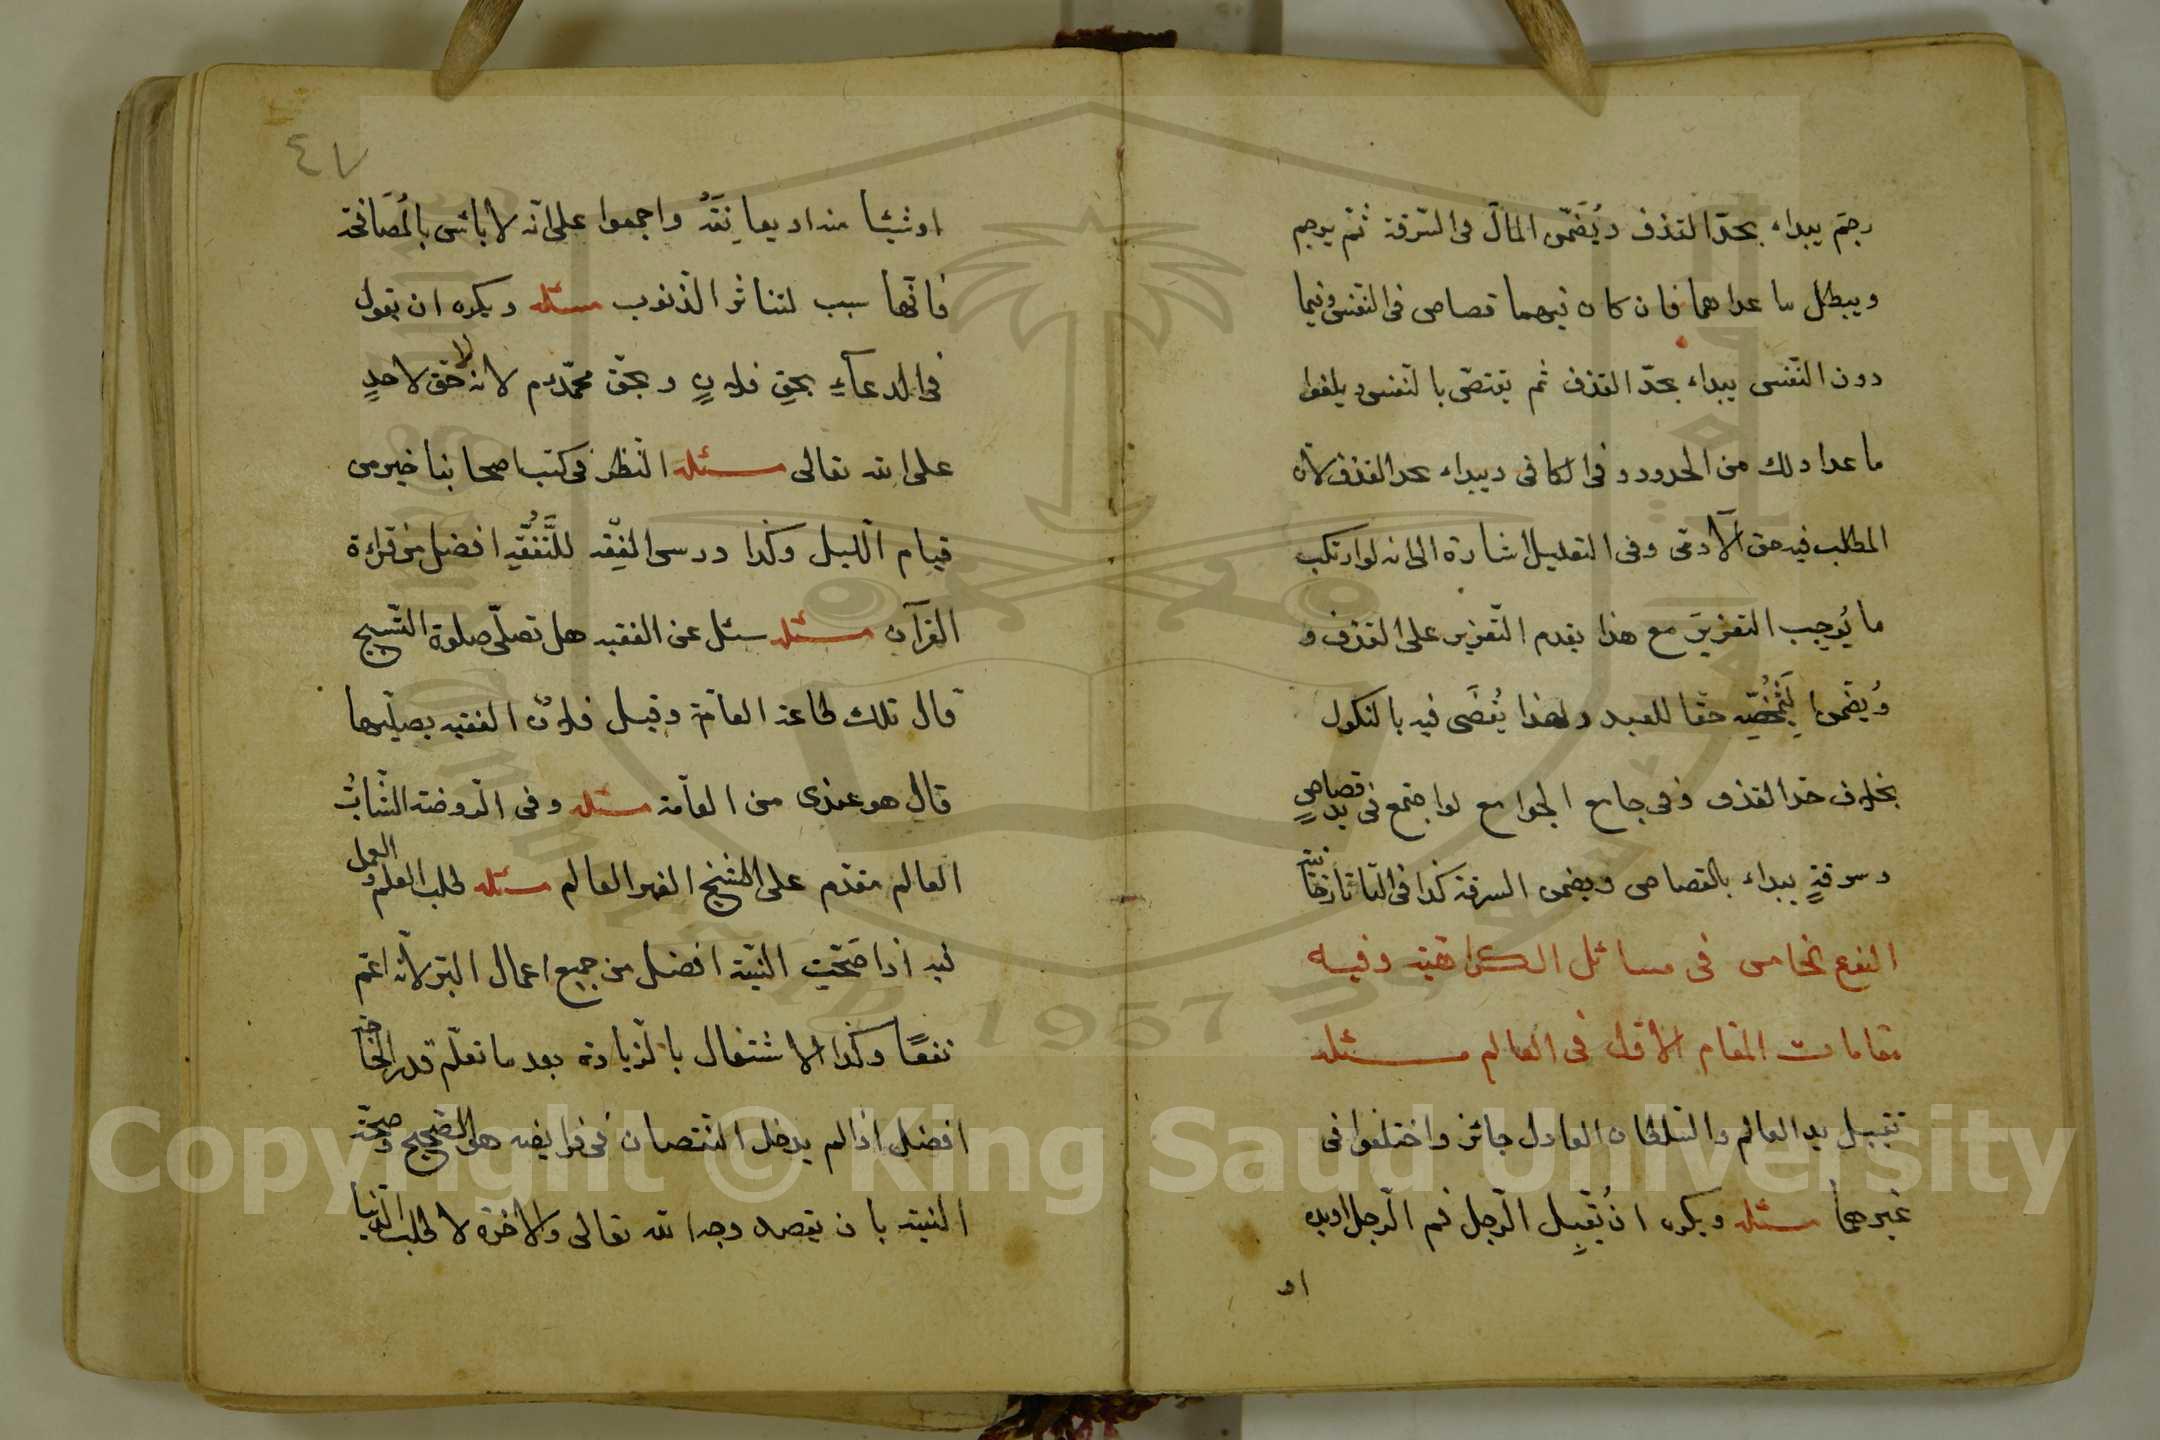 رجمَ يبداء بحدّ القذف ويُضَمّن المالَ فى السّرقة ثمّ يرجم
ويبطل ما عداهما فان كان فيهما قصاص فى النّفس وفيما
دون النّفس يبداء بحدّ القذف ثم يقتصّ بالنّفس ويلغوا
ما عدا ذلك من الحدود وفى الكافى ويبداء بحد القذف لانّ
المطلب فيه حق الآدمّى وفى التعليل اشارة الى انه لو ارتكب
ما يُوجِب التعزيرَ مع هذا يقدم التّعزير على القذف و
حقّا للعبد ولهذا يُقضَى فيه بالنكول
بخلاف حدّ القذف وفى جامع الجوامع لو اجتمع فى يدٍ قصاصٍ
وسرقةٍ يبداء بالقصاص ويضمن السرقة كذا فى التّاتارخانية
النوع الخامس فى مسائل الكراهيّة وفيه
مقامات المقام الاوّل فى العالم مسئله
تقبيل يد العالم والسّلطان العادل جائز واختلفوا فى
غيرهما مسئله ويكره ان يُقبِل الرّجل فم الرّجل او يده
او
٤٧
او شيئا منه او يعانِقَهُ واجمعوا على انّه لا بائس بالمُصَافحة
فانّها سبب لتناثر الذّنوب مسئله ويكره ان يقول
فى الدعآءِ بحقِ فلانٍ وبحقّ محمّد عم لانه لا حقّ لاحدٍ
على الله تعالى مسئله النّظر فى كتب اصحابنا خير من
قيام اللّيل وكذا درس الفِقْه للتَّفُقّهِ افضل من قراءة
القرآن مسئله سئل عن الفقيه هل تصلّى صلوة التّسبيح
قال تلك طاعة العامّة وقيل فلانٌ الفقيه يصلّيها
قال هو عندى من العامّة مسئله وفى الرّوضة الشّابُّ
العالم مقدّم على الشيخ الغير العالم مسئله طلب العلم والعمل
به اذا صَحّتِ النّيّة افضل من جميع اعمال البرّ لانّه اعمّ
نفعًا وكذا الاشتغال بالزّيادة بعد ما تعلّم قدر الحاجة
افضل اذا لم يدخل النّقصان فى فرايضه هو الصّحيح وصحّة
النيّة بان يقصد وجه الله تعالى والاخرة لا طلب الدّنيا
Copyright © King Saud University
1957